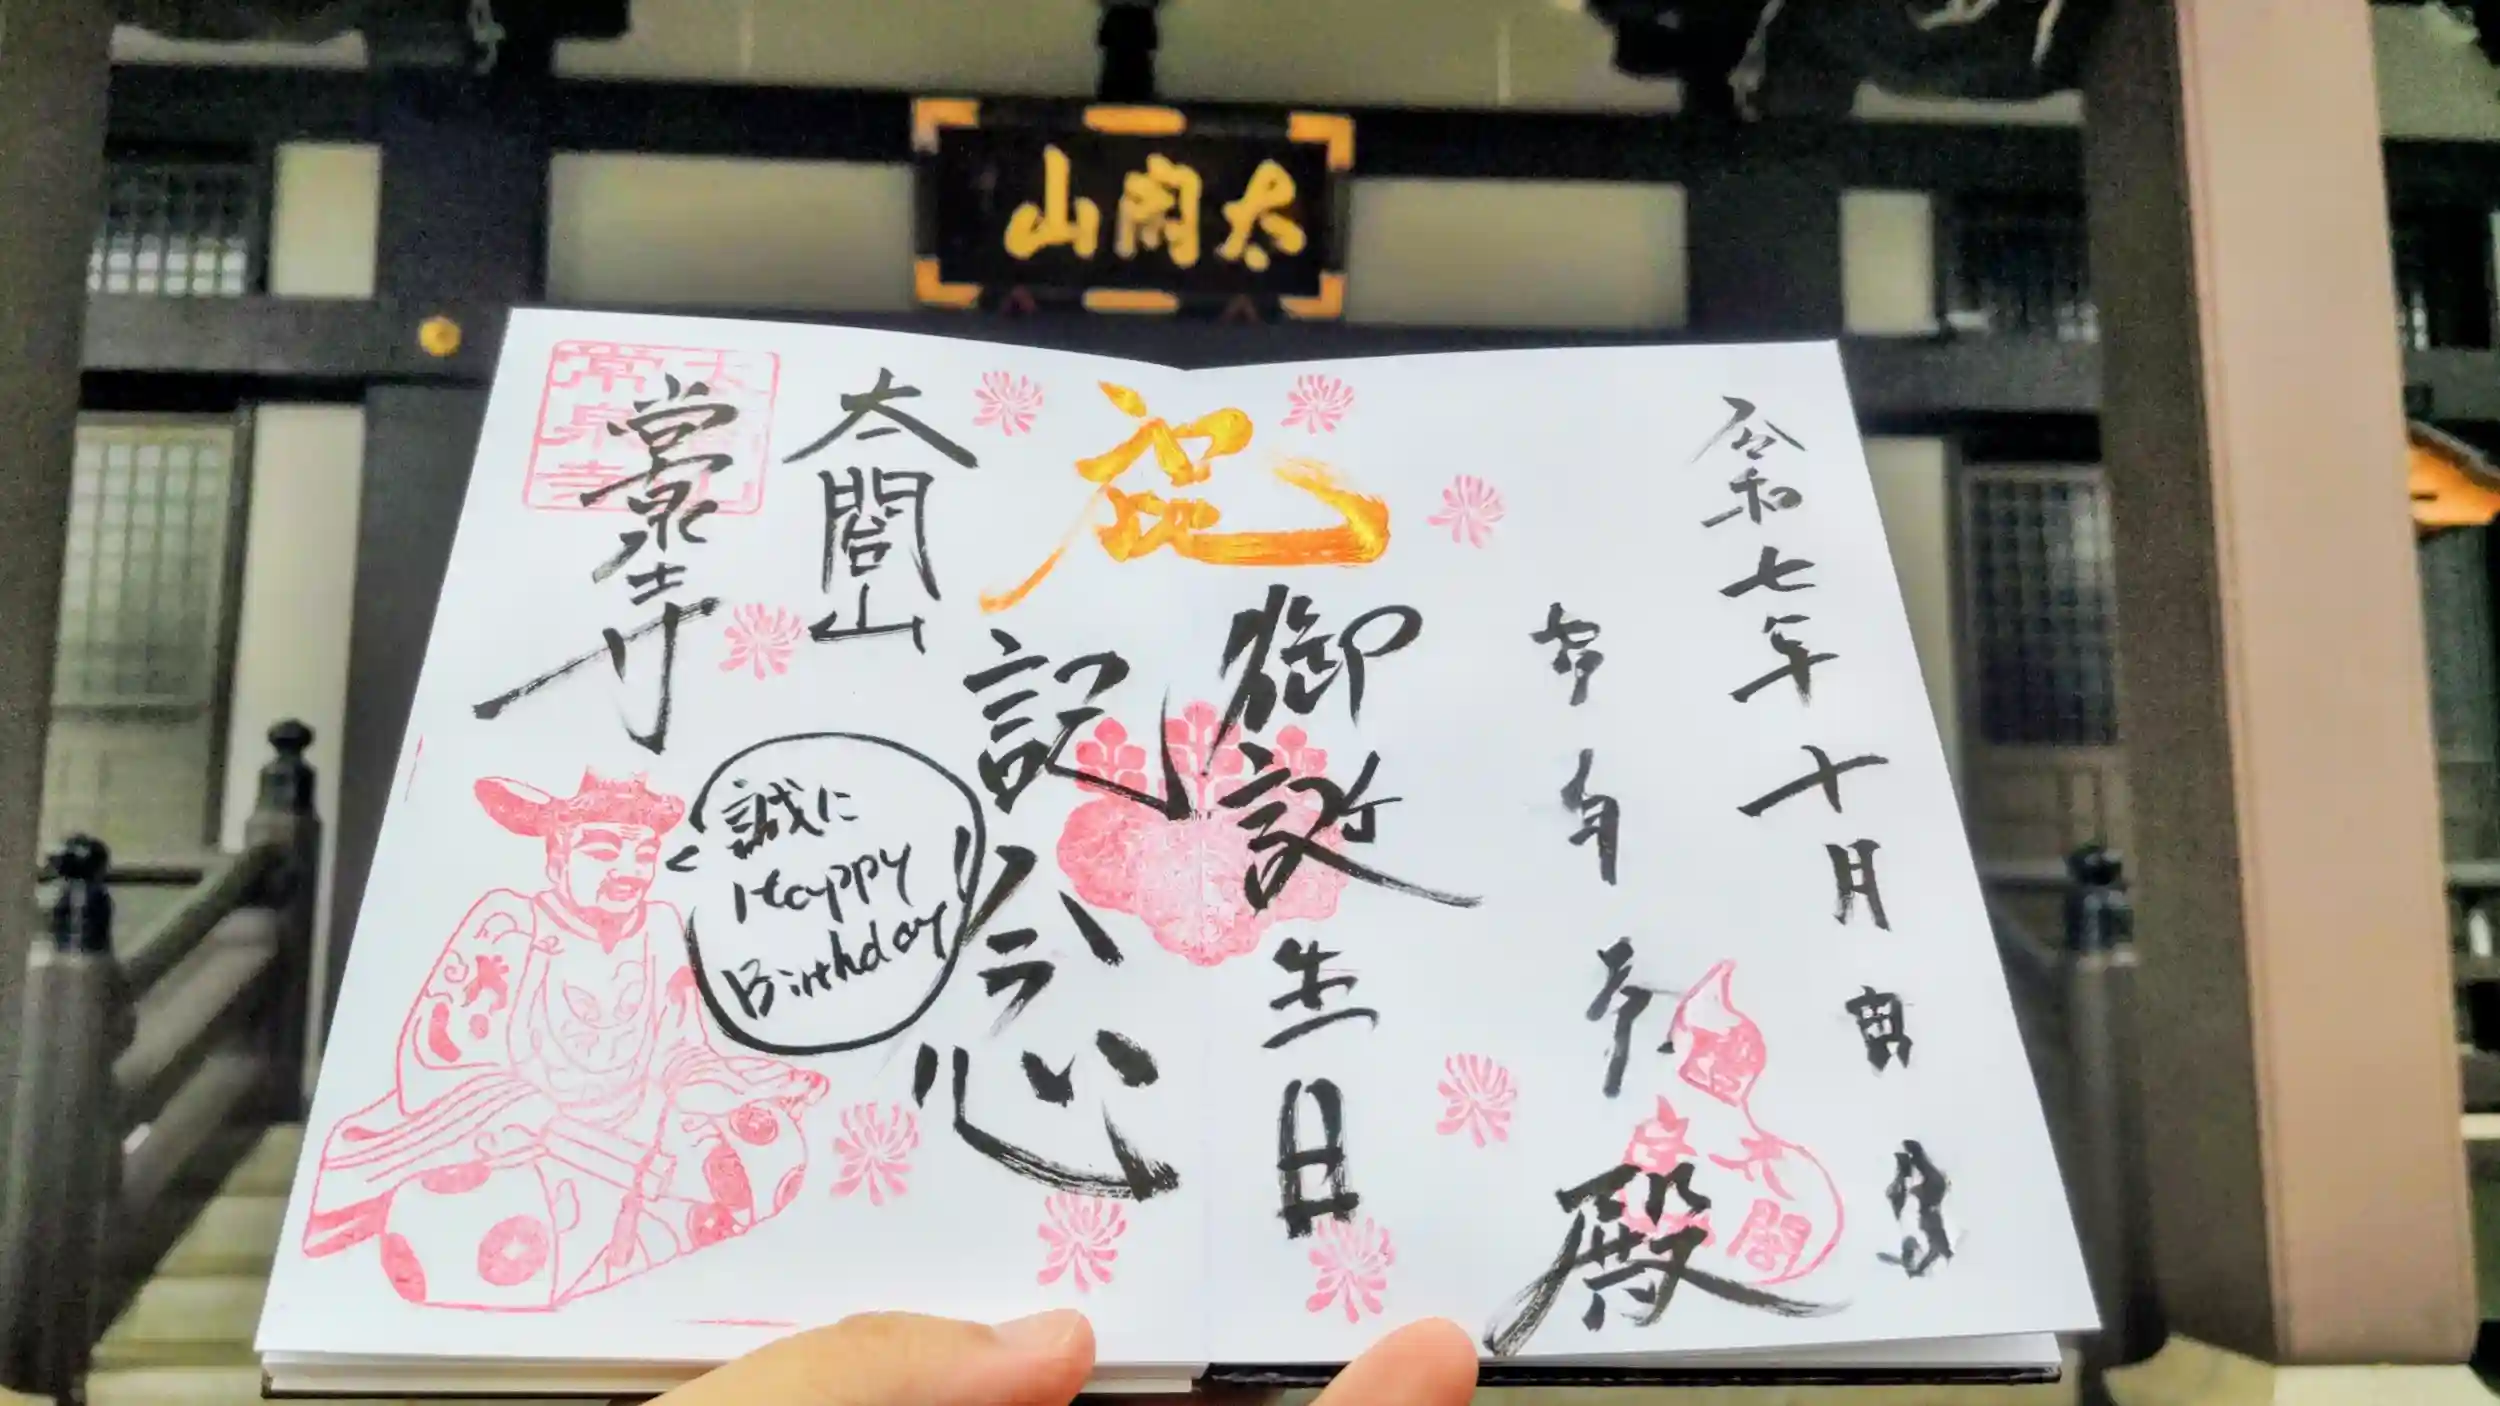 太閤山
令和七年十月
殿
祝
御誕生日
記念
太閤山
常泉寺
誠に
Happy
Birthday
太閤